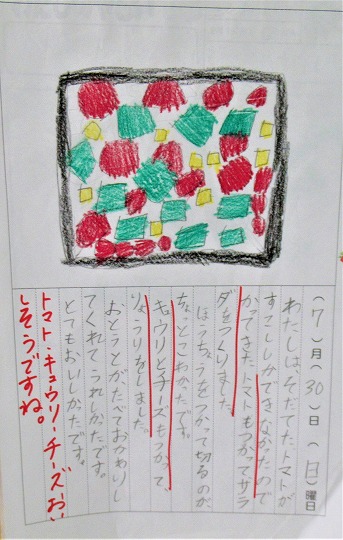 (7)月(30)日(日)曜日
わたしは、そだてたトマトが
すこししかできなかったので
かってきたトマトもつかってサラ
ダをつくりました。
ほうちょうをつかって切るのが、
ちょっとこわかったです。
キュウリとチーズもつかって、
りょうりをしました。
おとうとが、たべておかわりし
てくれてうれしかったです。
とてもおいしかったです。
トマト・キュウリ・チーズおい
しそうですね。